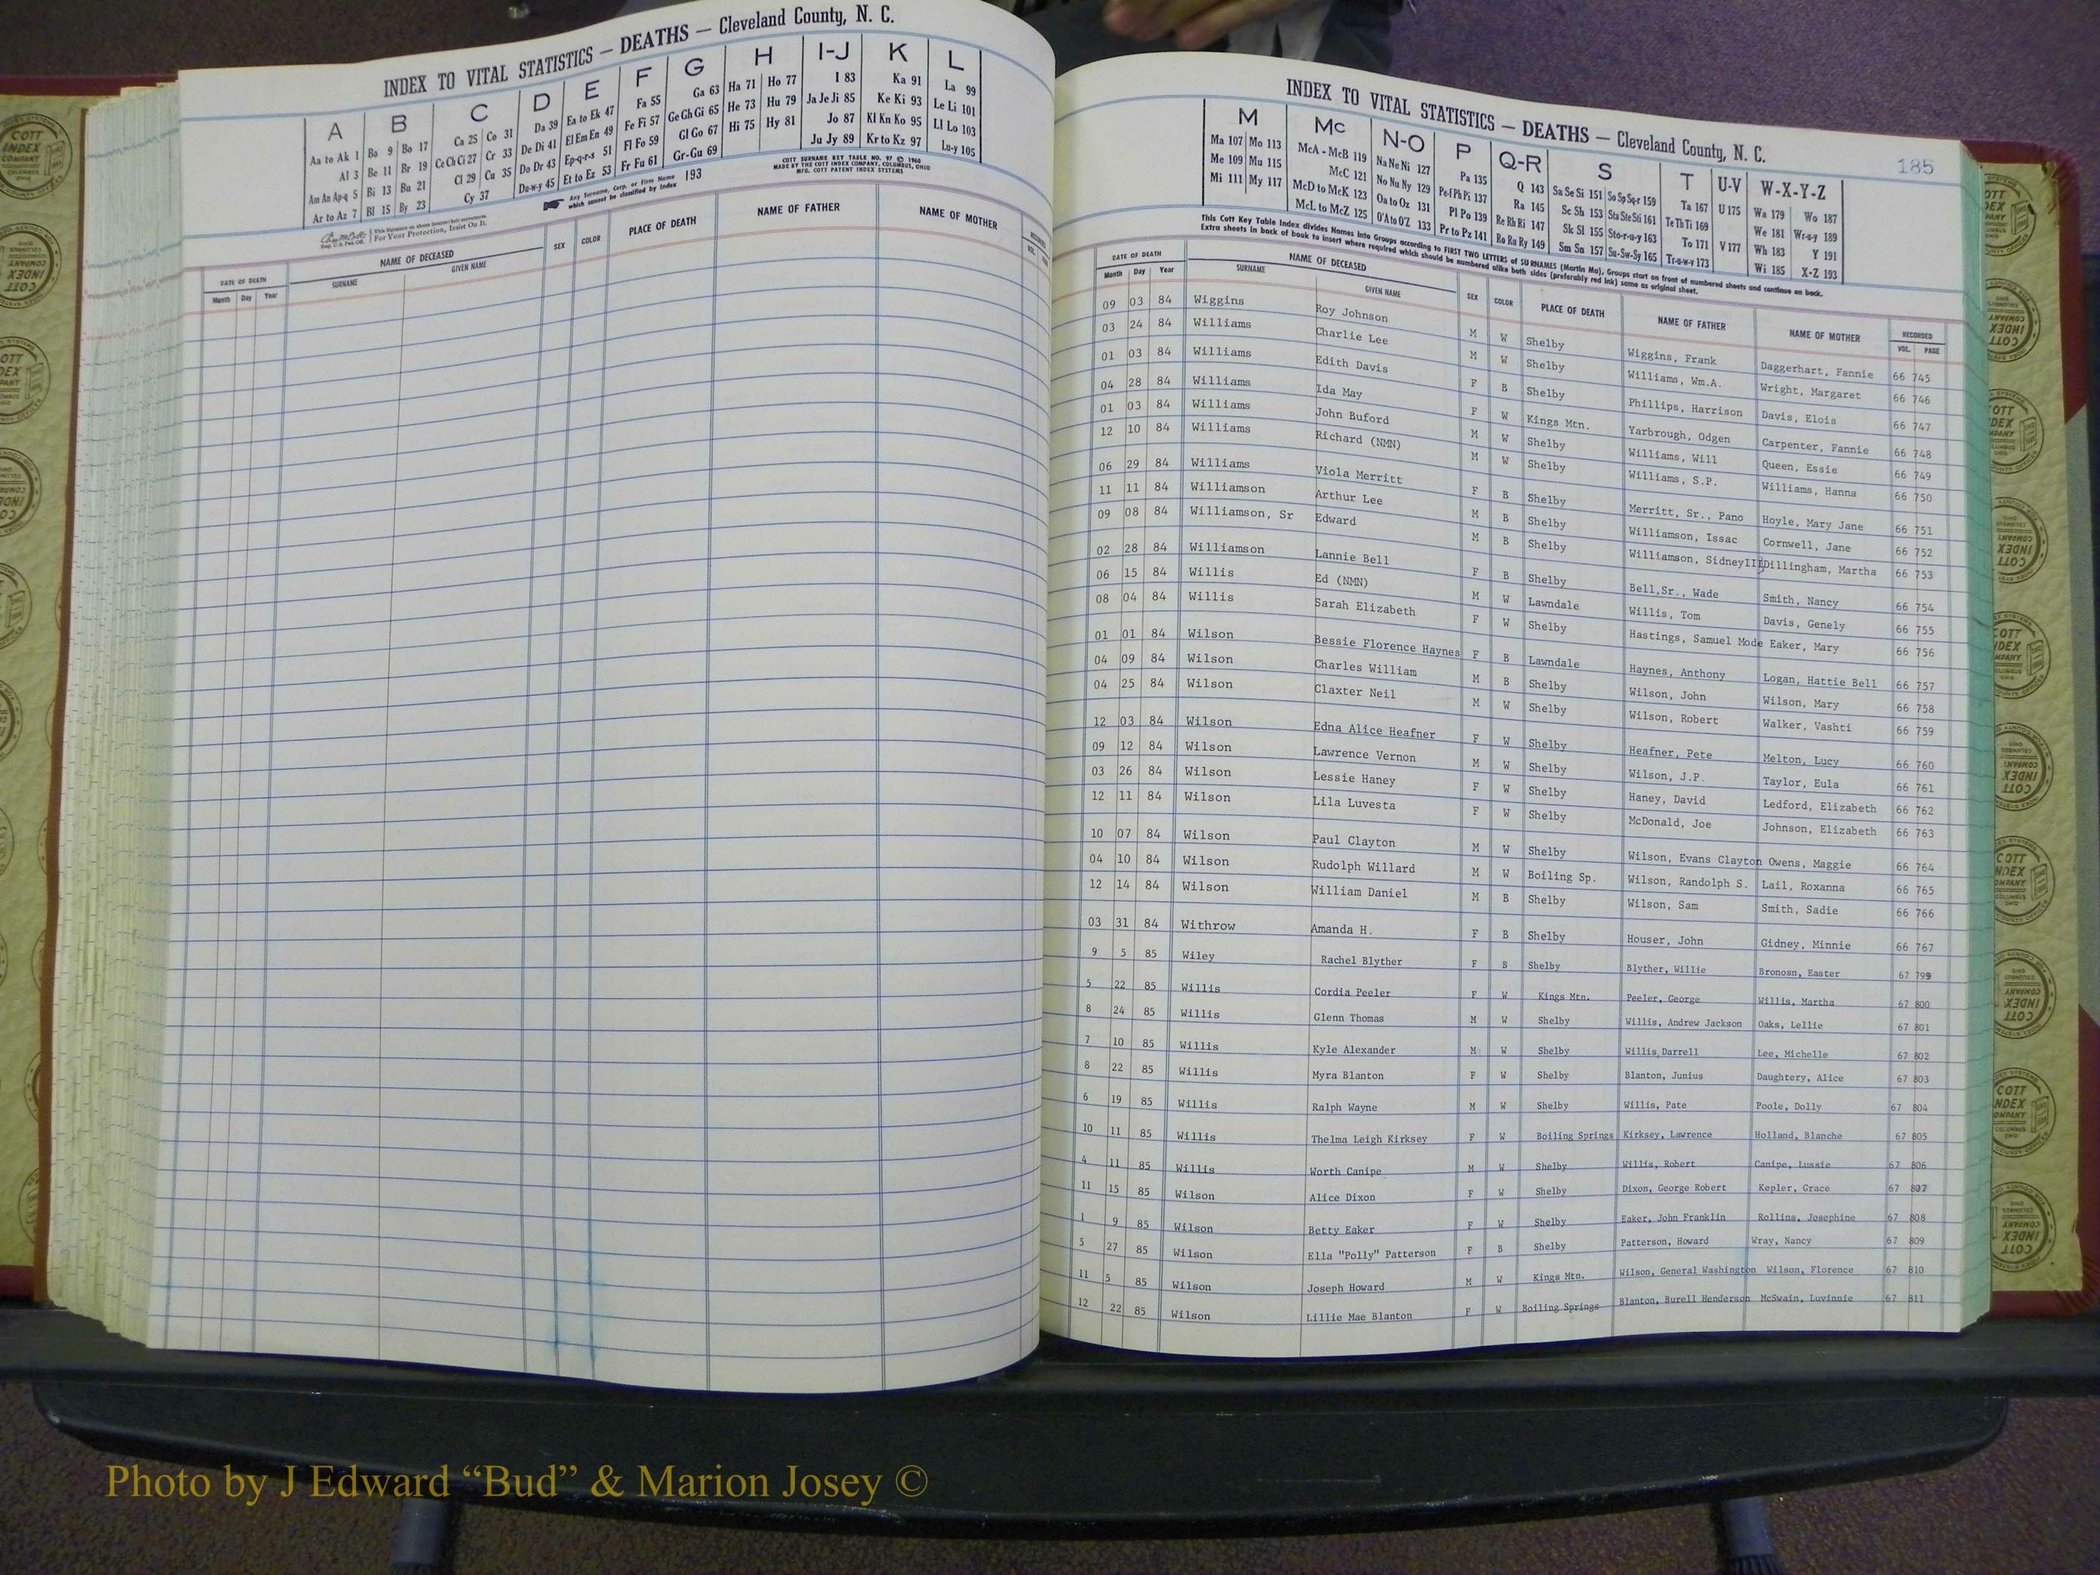 INDEX TO VITAL STATISTICS — DEATHS — Cleveland County, N. C.
A B C D E F G H I-J K L
Aa to Ak 1 Ba 9 Bo 17 Ca 25 Co 31 Da 39 Ea to Ek 47 Fa 55 Ga 63 Ha 71 Ho 77 I 83 Ka 91 La 99
Al 3 Be 11 Br 19 Ce Ch Ci 27 Cr 33 De Di 41 El Em En 49 Fe Fi 57 Ge Gh Gi 65 He 73 Hu 79 Ja Je Ji 85 Ke Ki 93 Le Li 101
Am An Ap-q 5 Bi 13 Bu 21 Cl 29 Cu 35 Do Dr 43 Ep-q-r-s 51 Fl Fo 59 Gl Go 67 Hi 75 Hy 81 Jo 87 Kl Kn Ko 95 Ll Lo 103
Ar to Az 7 Bl 15 By 23 Cy 37 Du-w-y 45 Et to Ez 53 Fr Fu 61 Gr-Gu 69 Ju Jy 89 Kr to Kz 97 Lu-y 105
Any Surname, Corp. or Firm Name which cannot be classified by Index 193
COTT SURNAME KEY TABLE NO. 97 © 1960
MADE BY THE COTT INDEX COMPANY, COLUMBUS, OHIO
MFG. COTT PATENT INDEX SYSTEMS
For Your Protection, Insist On It.
DATE OF DEATH NAME OF DECEASED SEX COLOR PLACE OF DEATH NAME OF FATHER NAME OF MOTHER
Month Day Year SURNAME GIVEN NAME
INDEX TO VITAL STATISTICS — DEATHS — Cleveland County, N. C.
185
M Mc N-O P Q-R S T U-V W-X-Y-Z
Ma 107 Mo 113 McA - McB 119 Na Ne Ni 127 Pa 135 Q 143 Sa Se Si 151 So Sp Sq-r 159 Ta 167 U 175 Wa 179 Wo 187
Me 109 Mu 115 McC 121 No Nu Ny 129 Pe-f Ph Pi 137 Ra 145 Sc Sh 153 Sta Ste Sti 161 Te Th Ti 169 We 181 Wr-u-y 189
Mi 111 My 117 McD to McK 123 Oa to Oz 131 Pl Po 139 Re Rh Ri 147 Sk Sl 155 Sto-r-u-y 163 To 171 V 177 Wh 183 Y 191
McL to McZ 125 O'A to O'Z 133 Pr to Pz 141 Ro Ru Ry 149 Sm Sn 157 Su-Sw-Sy 165 Tr-u-w-y 173 Wi 185 X-Z 193
This Cott Key Table Index divides Names into Groups according to FIRST TWO LETTERS of SURNAMES (Martin Ma), Groups start on front of numbered sheets and continue on back.
Extra sheets in back of book to insert where required which should be numbered alike both sides (preferably red ink) same as original sheet.
DATE OF DEATH NAME OF DECEASED SEX COLOR PLACE OF DEATH NAME OF FATHER NAME OF MOTHER RECORDED
Month Day Year SURNAME GIVEN NAME VOL. PAGE
09 03 84 Wiggins Roy Johnson M W Shelby Wiggins, Frank Daggerhart, Fannie 66 745
03 24 84 Williams Charlie Lee M W Shelby Williams, Wm.A. Wright, Margaret 66 746
01 03 84 Williams Edith Davis F B Shelby Phillips, Harrison Davis, Elois 66 747
04 28 84 Williams Ida May F W Kings Mtn. Yarbrough, Odgen Carpenter, Fannie 66 748
01 03 84 Williams John Buford M W Shelby Williams, Will Queen, Essie 66 749
12 10 84 Williams Richard (NMN) M W Shelby Williams, S.P. Williams, Hanna 66 750
06 29 84 Williams Viola Merritt F B Shelby Merritt, Sr., Pano Hoyle, Mary Jane 66 751
11 11 84 Williamson Arthur Lee M B Shelby Williamson, Issac Cornwell, Jane 66 752
09 08 84 Williamson, Sr Edward M B Shelby Williamson, SidneyIII Dillingham, Martha 66 753
02 28 84 Williamson Lannie Bell F B Shelby Bell,Sr., Wade Smith, Nancy 66 754
06 15 84 Willis Ed (NMN) M W Lawndale Willis, Tom Davis, Genely 66 755
08 04 84 Willis Sarah Elizabeth F W Shelby Hastings, Samuel Mode Eaker, Mary 66 756
01 01 84 Wilson Bessie Florence Haynes F B Lawndale Haynes, Anthony Logan, Hattie Bell 66 757
04 09 84 Wilson Charles William M B Shelby Wilson, John Wilson, Mary 66 758
04 25 84 Wilson Claxter Neil M W Shelby Wilson, Robert Walker, Vashti 66 759
12 03 84 Wilson Edna Alice Heafner F W Shelby Heafner, Pete Melton, Lucy 66 760
09 12 84 Wilson Lawrence Vernon M W Shelby Wilson, J.P. Taylor, Eula 66 761
03 26 84 Wilson Lessie Haney F W Shelby Haney, David Ledford, Elizabeth 66 762
12 11 84 Wilson Lila Luvesta F W Shelby McDonald, Joe Johnson, Elizabeth 66 763
10 07 84 Wilson Paul Clayton M W Shelby Wilson, Evans Clayton Owens, Maggie 66 764
04 10 84 Wilson Rudolph Willard M W Boiling Sp. Wilson, Randolph S. Lail, Roxanna 66 765
12 14 84 Wilson William Daniel M B Shelby Wilson, Sam Smith, Sadie 66 766
03 31 84 Withrow Amanda H. F B Shelby Houser, John Gidney, Minnie 66 767
9 5 85 Wiley Rachel Blyther F B Shelby Blyther, Willie Bronosn, Easter 67 799
5 22 85 Willis Cordia Peeler F W Kings Mtn. Peeler, George Willis, Martha 67 800
8 24 85 Willis Glenn Thomas M W Shelby Willis, Andrew Jackson Oaks, Lellie 67 801
7 10 85 Willis Kyle Alexander M W Shelby Willis,Darrell Lee, Michelle 67 802
8 22 85 Willis Myra Blanton F W Shelby Blanton, Junius Daughtery, Alice 67 803
6 19 85 Willis Ralph Wayne M W Shelby Willis, Pate Poole, Dolly 67 804
10 11 85 Willis Thelma Leigh Kirksey F W Boiling Springs Kirksey, Lawrence Holland, Blanche 67 805
4 11 85 Willis Worth Canipe M W Shelby Willis, Robert Canipe, Lussie 67 806
11 15 85 Wilson Alice Dixon F W Shelby Dixon, George Robert Kepler, Grace 67 807
1 9 85 Wilson Betty Eaker F W Shelby Eaker, John Franklin Rollins, Josephine 67 808
5 27 85 Wilson Ella "Polly" Patterson F B Shelby Patterson, Howard Wray, Nancy 67 809
11 5 85 Wilson Joseph Howard M W Kings Mtn. Wilson, General Washington Wilson, Florence 67 810
12 22 85 Wilson Lillie Mae Blanton F W Boiling Springs Blanton, Burell Henderson McSwain, Luvinnie 67 811
Photo by J Edward “Bud” & Marion Josey ©